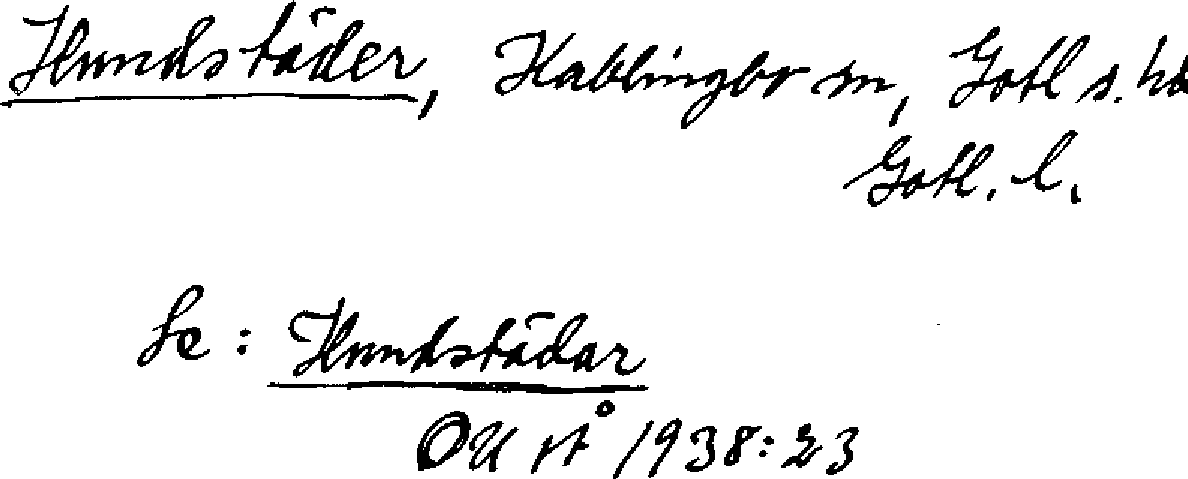 Hundstäder, Hablingbo sn, Gotl s. hd
Gotl. l.
Se: Hundstädar
OU Å 1938:23